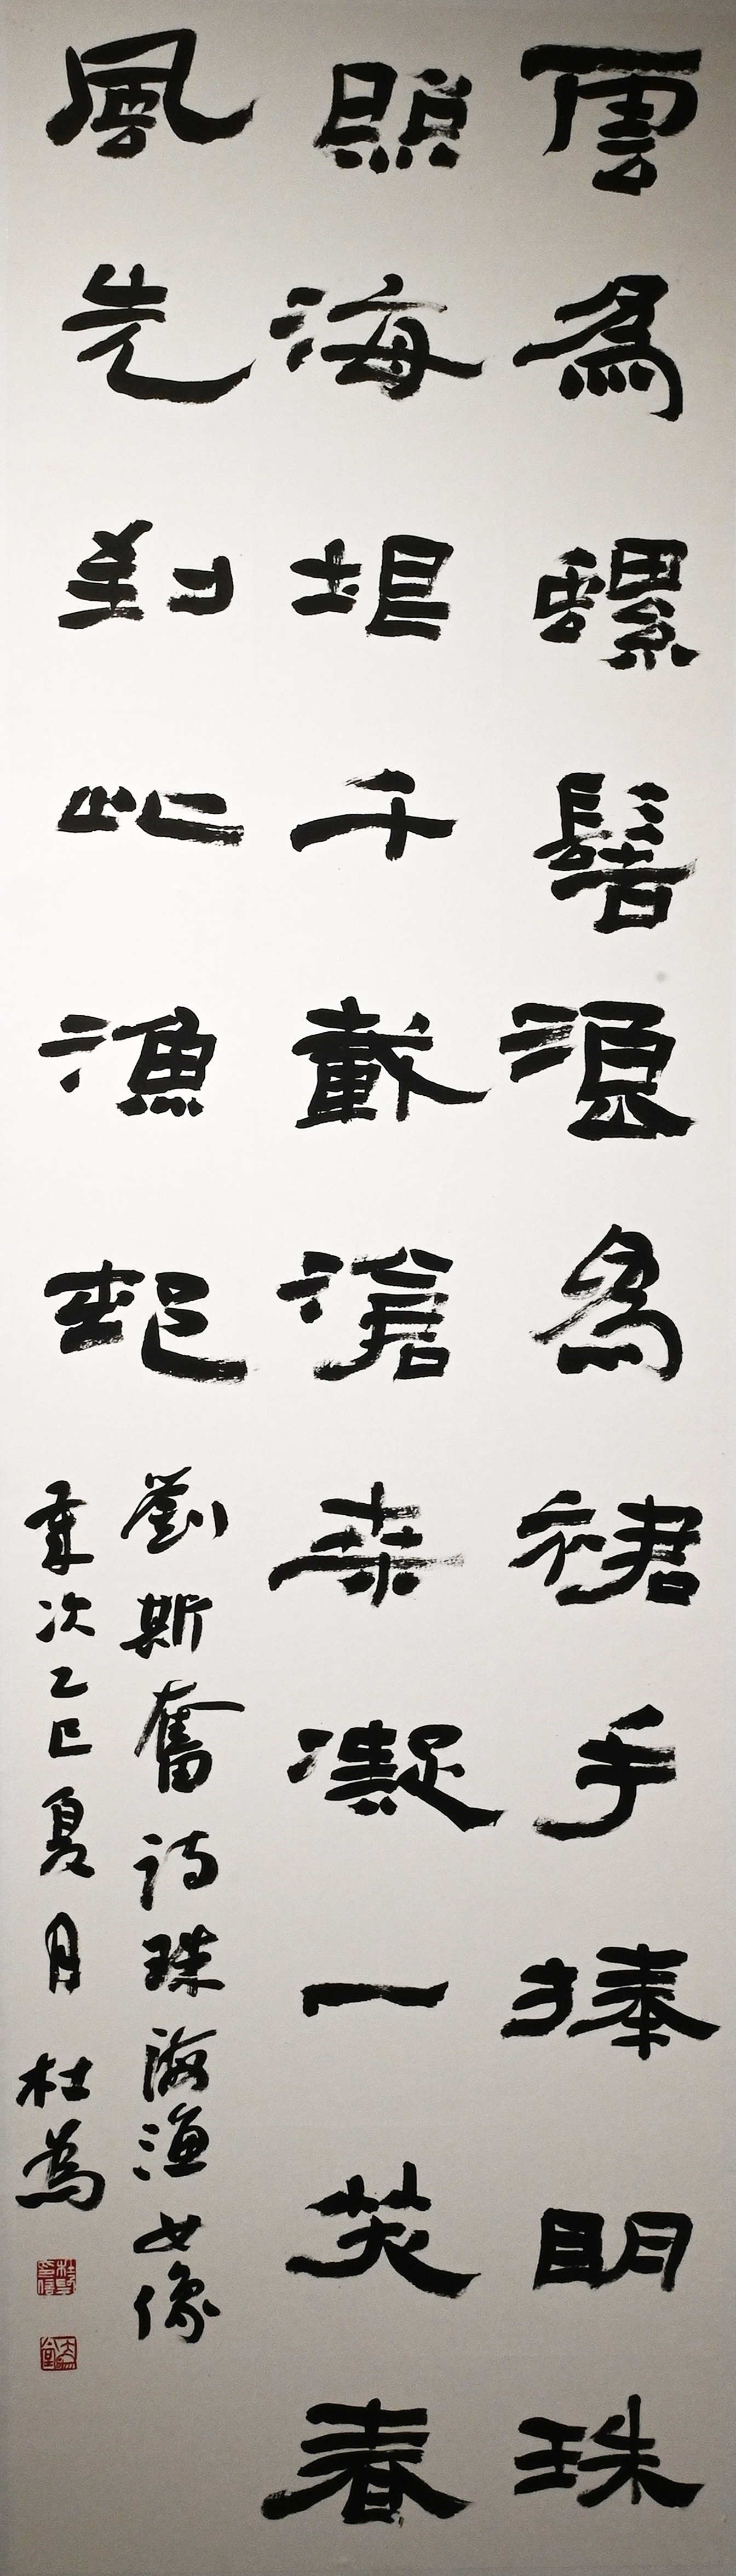 雲為螺髻浪為裙手捧明珠
照海垠千載滄桑凝一笑春
風先到此漁邨
劉斯奮詩珠海漁女像
歲次乙巳夏月杜為